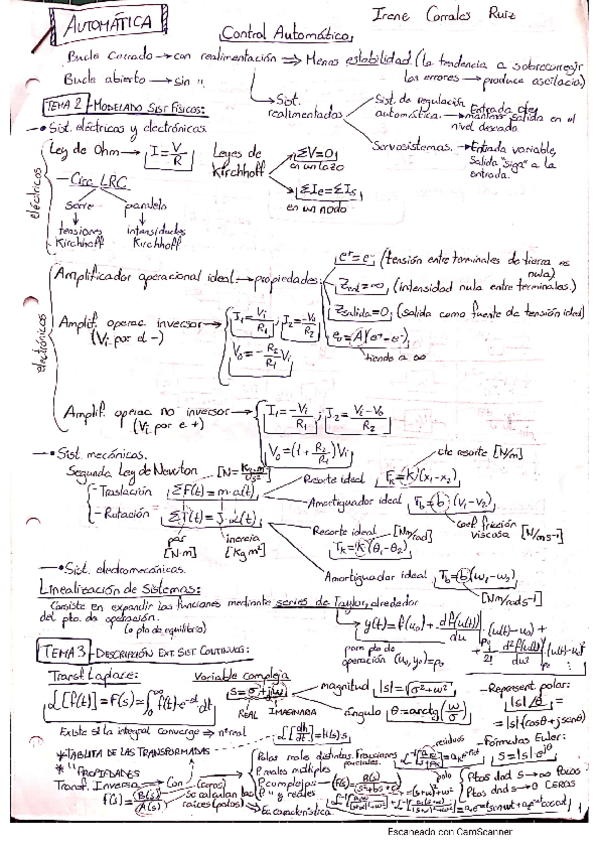 AUTOMÁTICA
Irene Corrales Ruiz
Control Automático
Bucle Cerrado → con realimentación ⇒ Menos estabilidad (la tendencia a sobrecorregir
los errores → produce oscilación)
Bucle abierto → sin "
→ Sist. realimentados
Sist. de regulación automática. → Entrada cte, mantener salida en el nivel deseado
Servosistemas. → Entrada variable, Salida "siga" a la entrada.
TEMA 2 - MODELADO SIST FÍSICOS:
→ • Sist. eléctricos y electrónicos.
eléctricos
Ley de Ohm → I = V/R
Leyes de Kirchhoff
ΣV=0 en un lazo
ΣIe = ΣIs en un nodo
Circ LRC
serie
paralelo
tensiones Kirchhoff
intensidades Kirchhoff
electrónicos
Amplificador operacional ideal → propiedades:
e+ = e- (tensión entre terminales de tierra es nula)
Zent = ∞ (intensidad nula entre terminales.)
Zsalida = 0 (salida como fuente de tensión ideal)
eo = A(e+ - e-)
tiende a ∞
Amplif. operac. inversor → (Vi por el -)
I1 = Vi/R1 ; I2 = -Vo/R2
Vo = -R2/R1 Vi
Amplif. operac no inversor → (Vi por e+)
I1 = -Vi/R1 ; I2 = Vi-Vo/R2
Vo = (1 + R2/R1) Vi
→ • Sist. mecánicos.
Segunda Ley de Newton
- Traslación ΣF(t) = m·a(t)
- Rotación ΣT(t) = J·α(t)
par [N·m]
inercia [Kg m²]
Resorte ideal Fk = K(x1-x2)
cte resorte [N/m]
Amortiguador ideal Tb = b (v1-v2)
coef fricción viscosa [N/ms-1]
Resorte ideal [Nm/rad]
Tk = K(θ1-θ2)
Amortiguador ideal Tb = b(ω1-ω2)
[Nm/rad s-1]
→ • Sist. electromecánicos.
Linealización de Sistemas:
Consiste en expandir las funciones mediante series de Taylor, alrededor
del pto. de operación.
(o pto de equilibrio)
para pto de operación (u0, y0) = p0
TEMA 3 - DESCRIPCIÓN EXT. SIST CONTINUOS:
Transf. Laplace:
L[f(t)] = F(s) = ∫0∞ f(t)·e-st dt
Existe si la integral converge ⇒ nº real
Variable compleja
s = σ + jω
REAL IMAGINARIA
magnitud |s| = √σ²+ω²
ángulo θ = arctg(ω/σ)
- Represent polar:
|s| /θ =
= |s|(cosθ + j senθ)
- Fórmulas Euler:
s = |s| e^jθ
* TABLITA DE LAS TRANSFORMADAS
* " PROPIEDADES
Transf. Inversa
(ceros)
Se calculan las raíces (polos)
Ec característica.
Polos reales distintos. Fracciones parciales.
P reales múltiples
P complejas
P " y reales
residuos
polo
Ptos dnd s→∞ POLOS
Ptos dnd s→0 CEROS
Escaneado con CamScanner